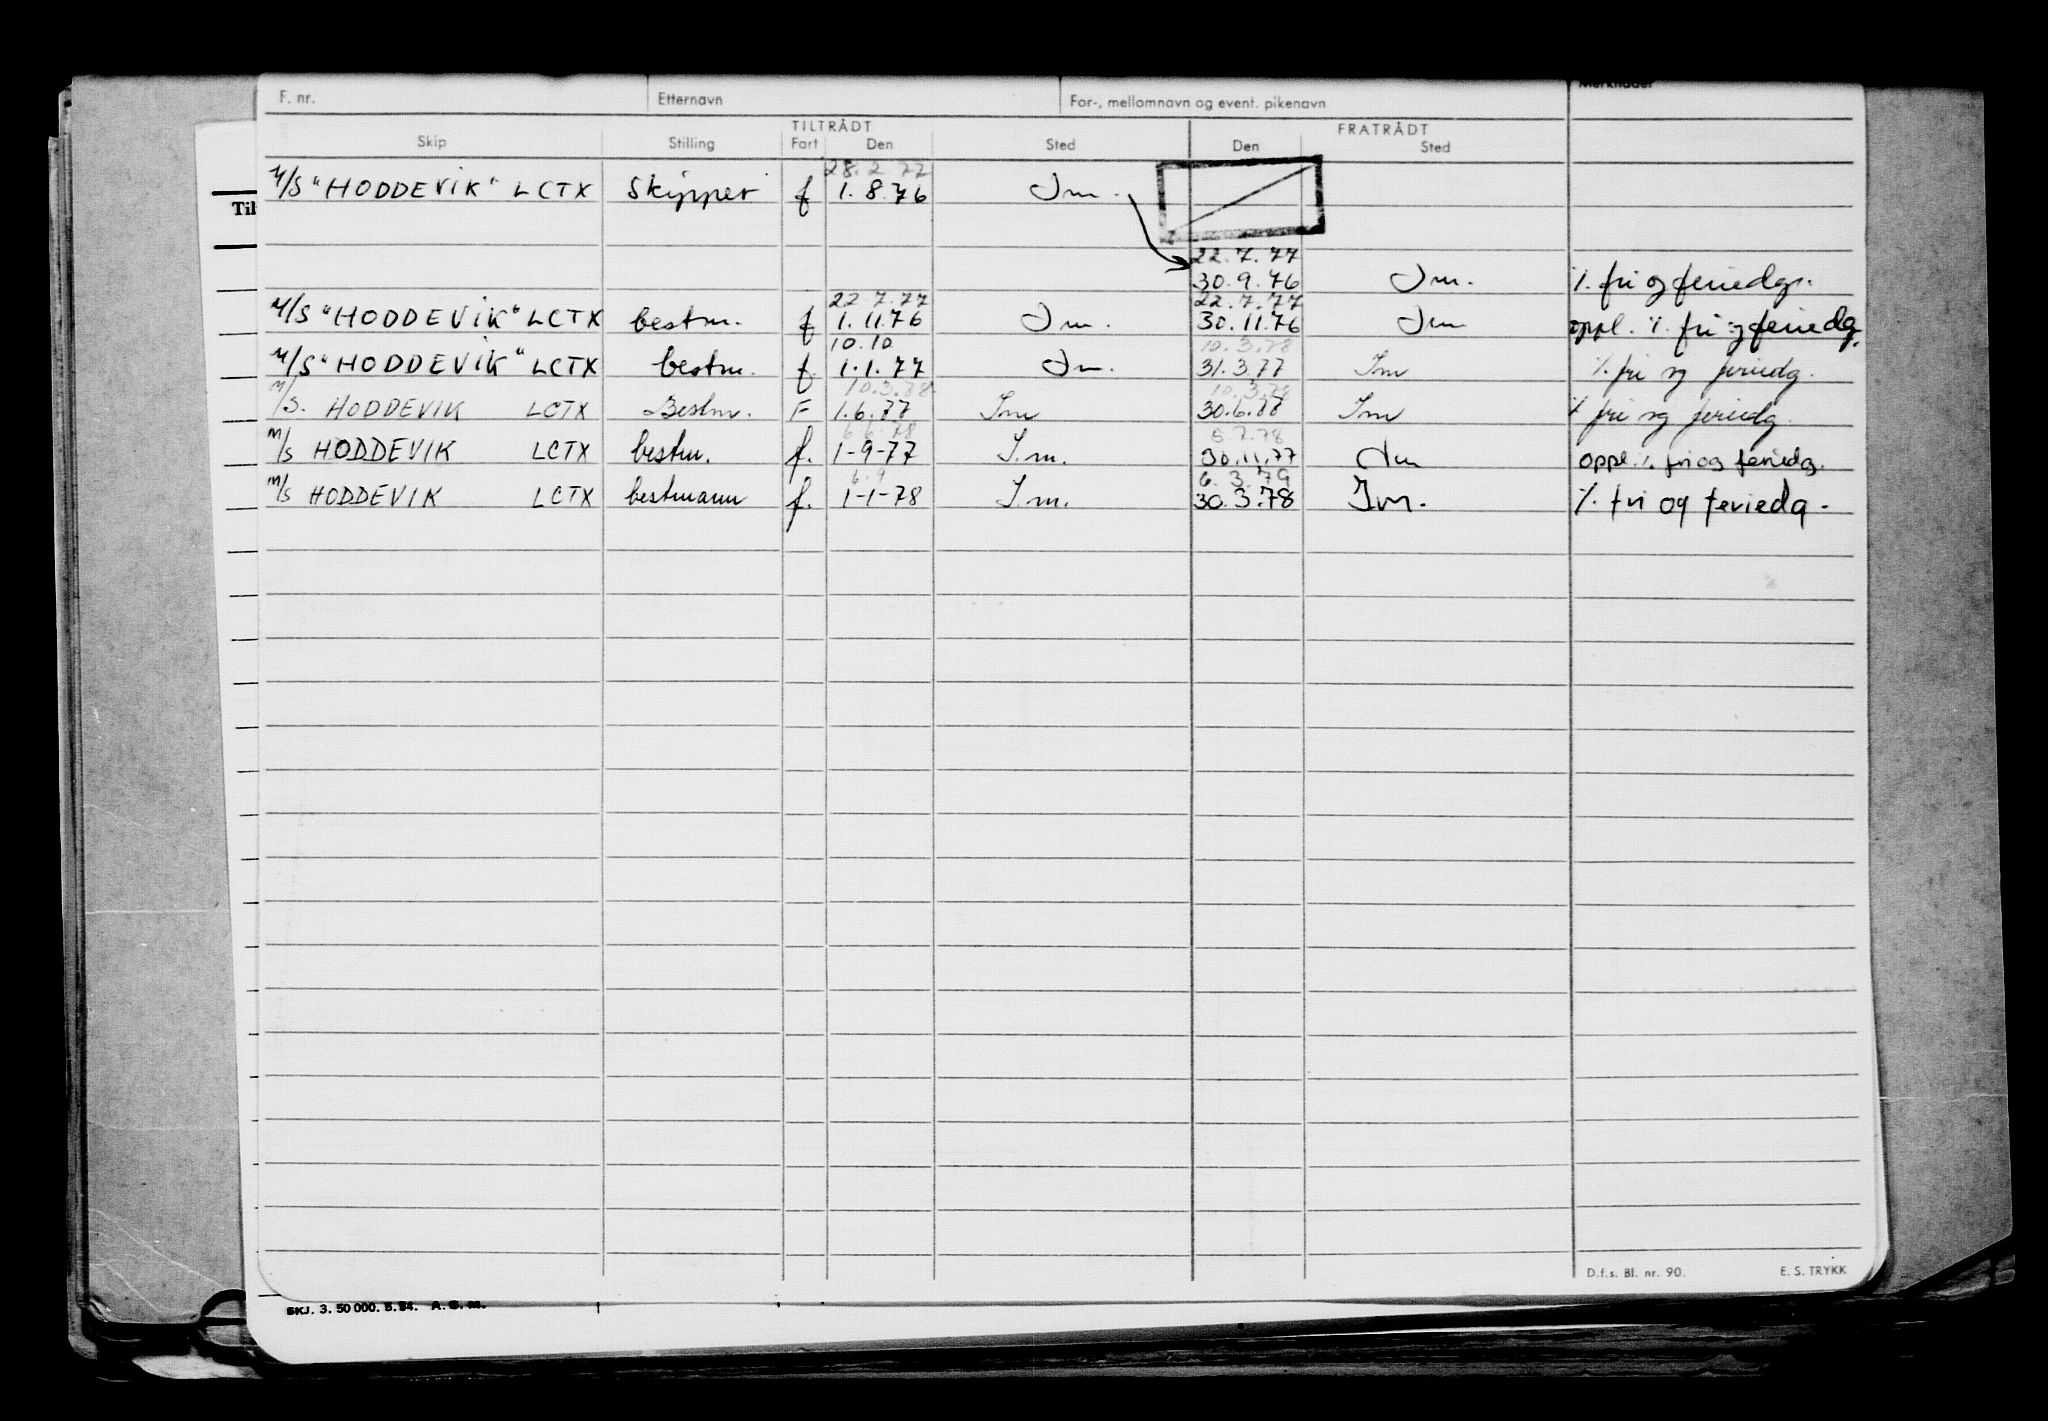 F. nr. Etternavn For-, mellomnavn og event. pikenavn Merknader
TILTRÅDT FRATRÅDT
Skip Stilling Fart Den Sted Den Sted
28.2 77
M/S "HODDEVIK" LCTX Skipper f 1.8.76 Im.
Til
22.7.77
30.9.76 Im. %. fri og feriedgr.
22.7.77 22.7.77
M/S "HODDEVIK" LCTX bestm. f 1.11.76 Im. 30.11.76 Im oppl. %. fri og feriedg.
10.10 10.3.78
M/S "HODDEVIK" LCTX bestm. f. 1.1.77 Im. 31.3.77 Im %. fri og feriedg.
10.3.78 10.3.78
M/S. HODDEVIK LCTX Bestm. F 1.6.77 Im 30.6.77 Im % fri og feriedg.
6.6.78 5.7.78
M/S HODDEVIK LCTX bestm. f. 1-9-77 I.m. 30.11.77 Im oppl. %. fri og feriedg.
6.9 6.3.79
M/S HODDEVIK LCTX bestmann f. 1-1-78 I.m. 30.3.78 Im. %. fri og feriedg.
D.f.s. Bl. nr. 90. E. S. TRYKK
SKJ. 3. 50 000. 5.54. A. S. m.